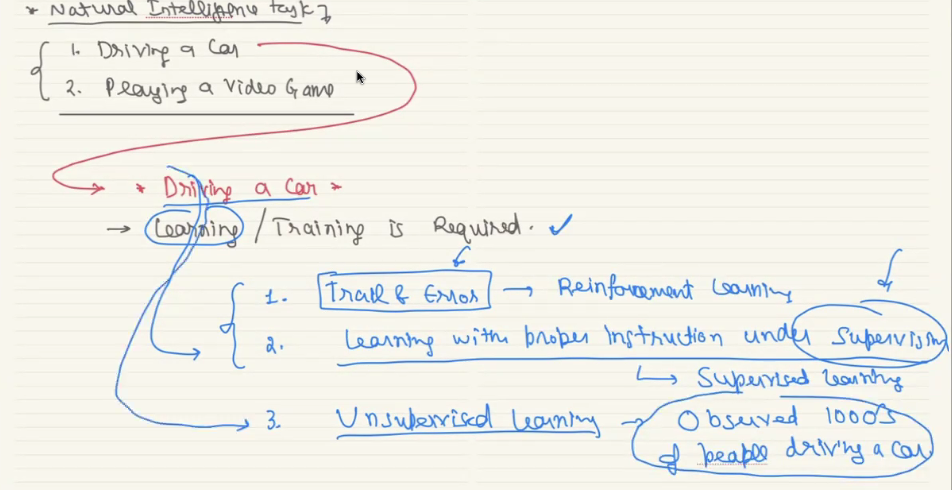 * Natural Intelligence task
1. Driving a Car
2. Playing a Video Game
* Driving a Car *
→ Learning / Training is Required. ✓
1. Trail & Error → Reinforcement Learning
2. Learning with proper instruction under Supervision
↳ Supervised Learning
3. Unsupervised Learning → Observed 1000's
of peaple driving a Car